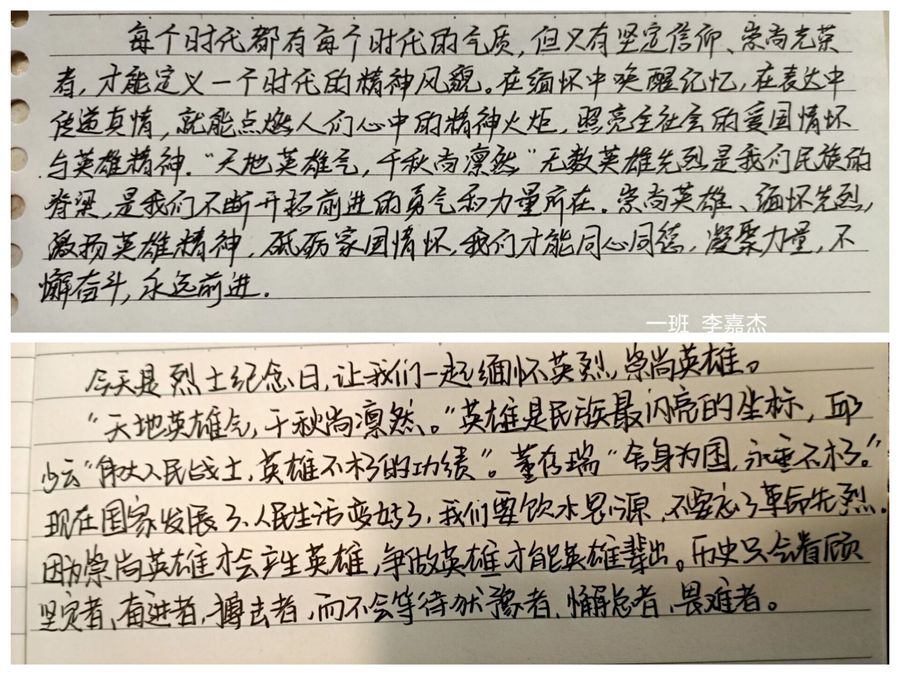 每个时代都有每个时代的气质,但只有坚定信仰、崇尚光荣
者,才能定义一个时代的精神风貌。在缅怀中唤醒记忆,在表达中
传递真情,就能点燃人们心中的精神火炬,照亮全社会的爱国情怀
与英雄精神."天地英雄气,千秋尚凛然"无数英雄先烈是我们民族的
脊梁,是我们不断开拓前进的勇气和力量所在.崇尚英雄、缅怀先烈,
激扬英雄精神,砥砺家国情怀,我们才能同心同德,凝聚力量,不
懈奋斗,永远前进.
一班 李嘉杰
今天是烈士纪念日,让我们一起缅怀英烈,崇尚英雄。
"天地英雄气,千秋尚凛然。"英雄是民族最闪亮的坐标,邱
少云"伟大人民战士,英雄不朽的功绩"。董存瑞"舍身为国,永垂不朽。"
现在国家发展了、人民生活变好了,我们要饮水思源,不要忘了革命先烈.
因为崇尚英雄才会产生英雄,争做英雄才能英雄辈出。历史只会眷顾
坚定者、奋进者、搏击者,而不会等待犹豫者、懈怠者、畏难者。